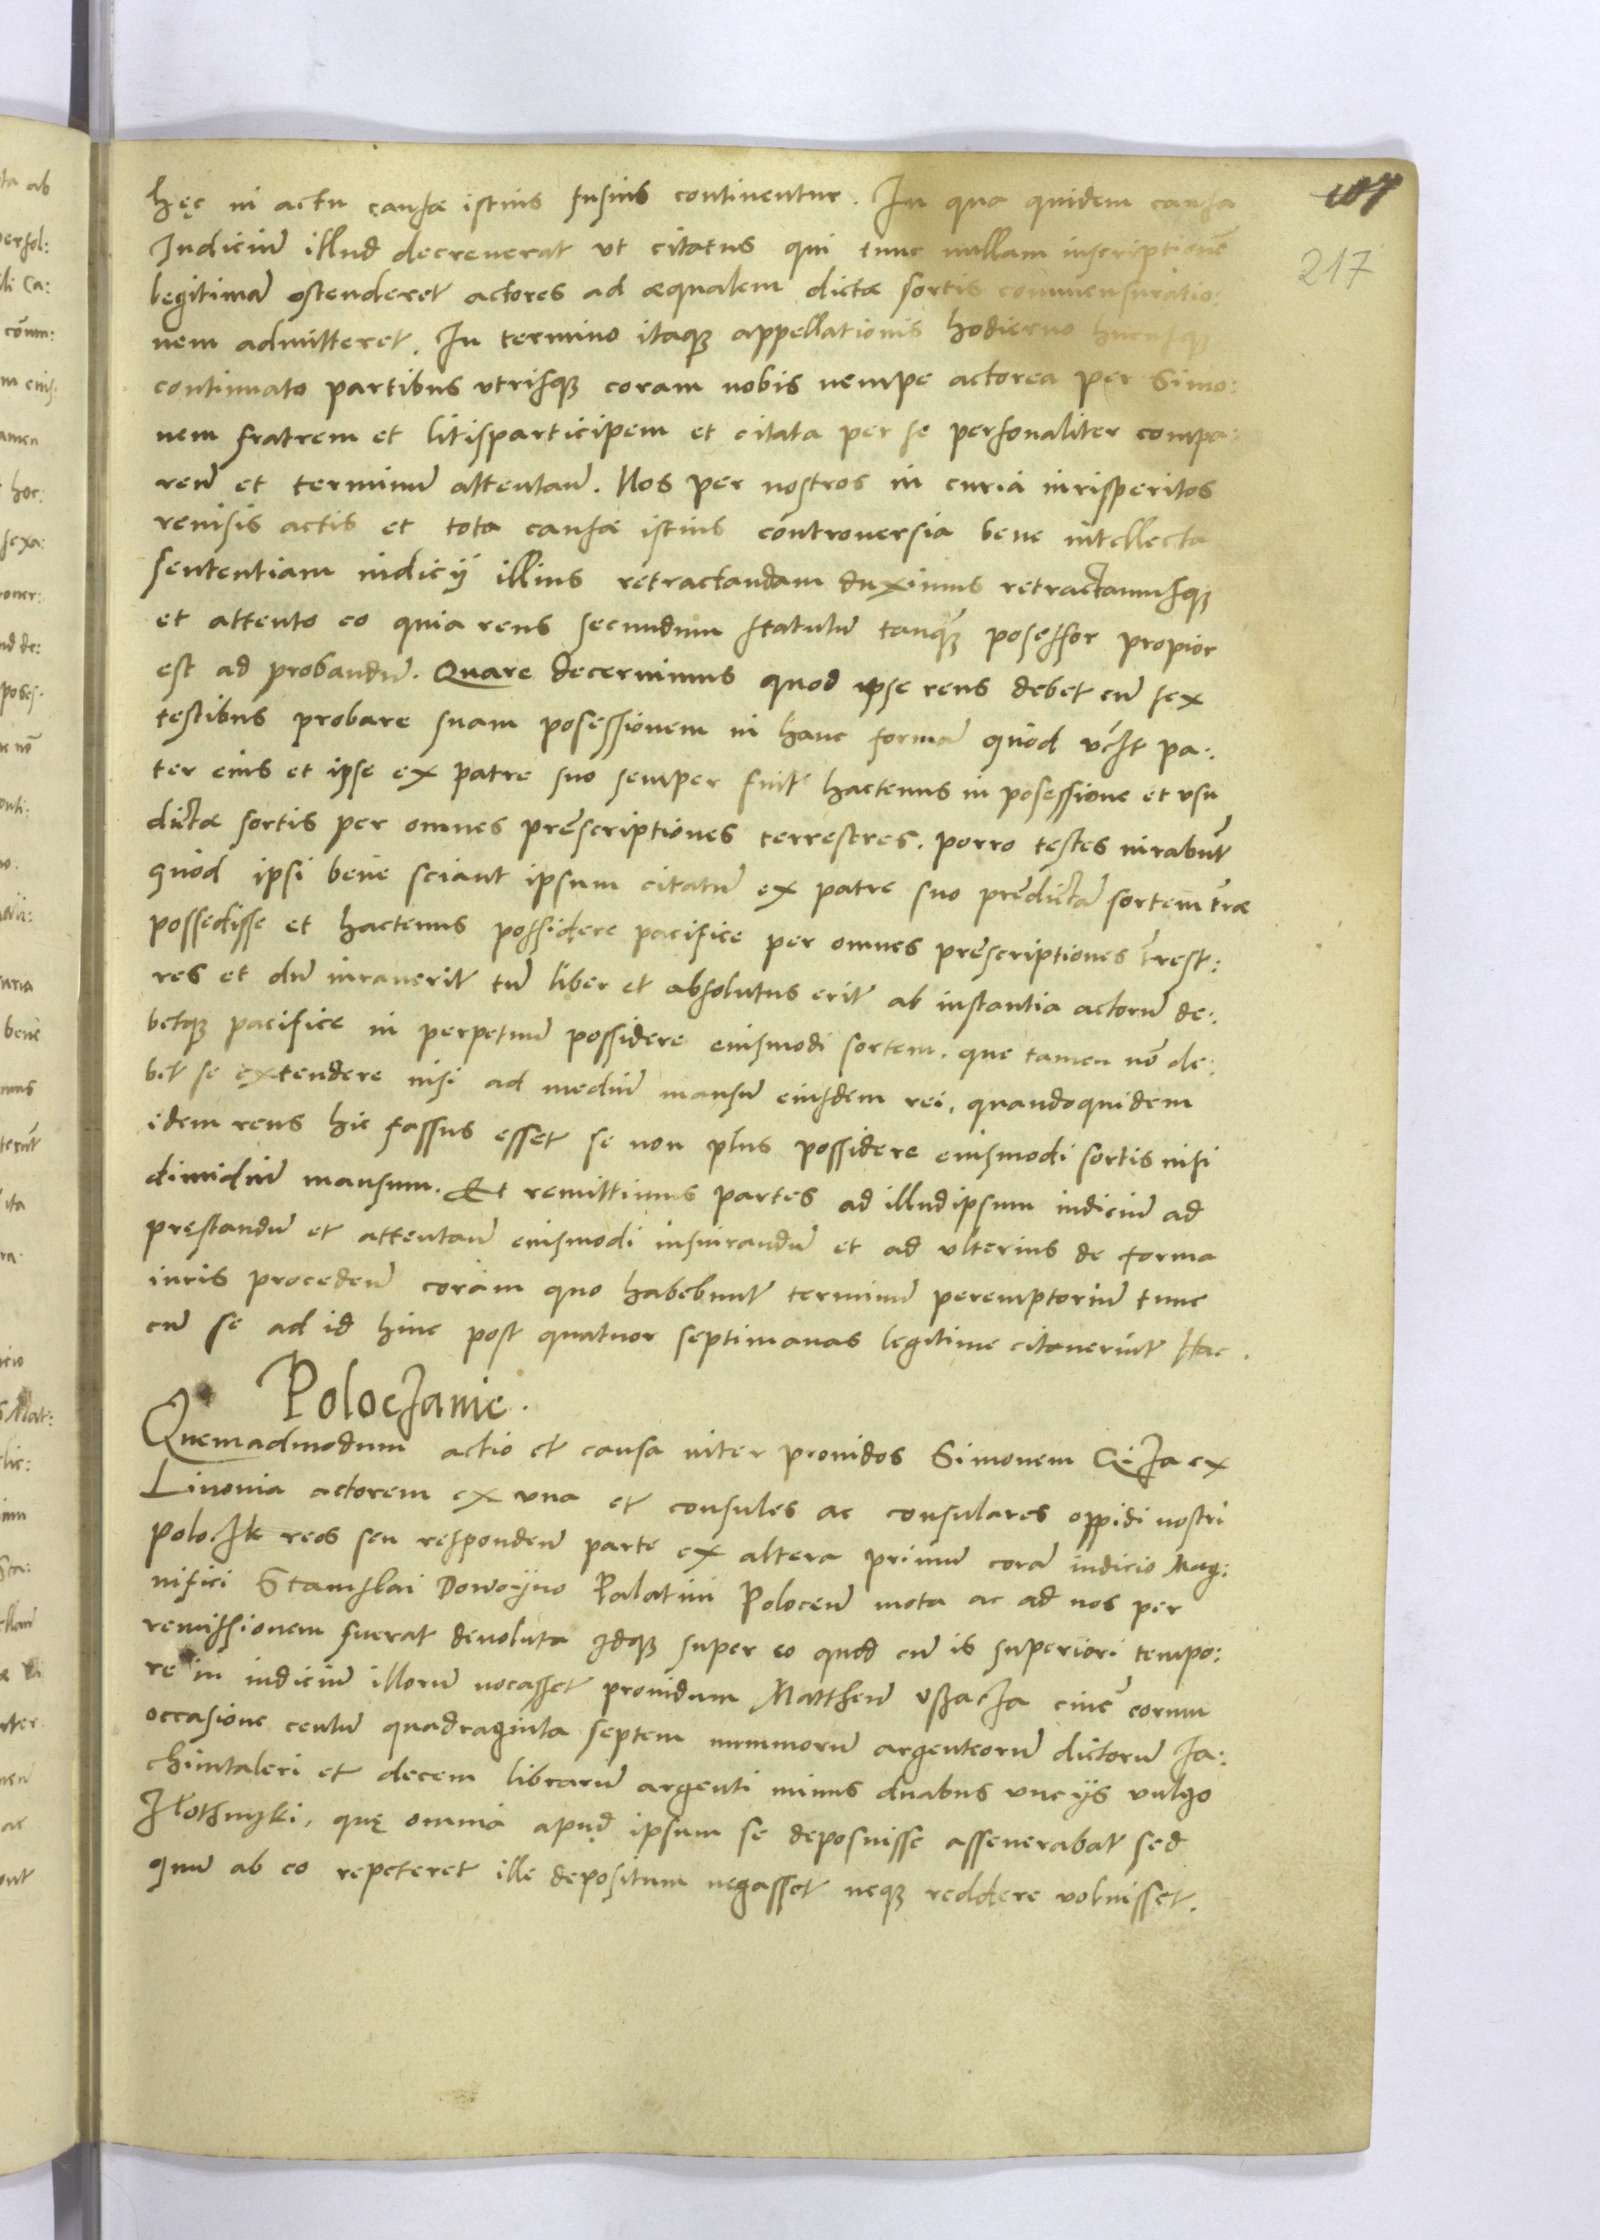 107
217
hęc in actu causæ istius fusius continentur. In qua quidem causa
Judiciũ illud decreuerat vt citatus qui tunc nullam inscriptionẽ
legitimã ostenderet actores ad æqualem dictæ sortis commensuratio:
nem admitteret. In termino itaqꝫ appellationis hodierno hucusqꝫ
continuato partibus vtrisqꝫ coram nobis nempe actorea per Simo:
nem fratrem et litisparticipem et citata per se personaliter compa:
ren̄ et terminũ attentan̄. Nos per nostros in curia iurisperitos
reuisis actis et tota causæ istius controuersia bene intellecta
sententiam iudicij illius retractandam duximus retractamusqꝫ
et attento eo quia reus secundum statutũ tanqꝫ̃ posessor propior
est ad probandũ. Quare decernimus quod ipse reus debet cũ sex
testibus probare suam posessionem in hanc formã quod pa:
ter eius et ipse ex patre suo semper fuit hactenus in posessione et vsu
dictæ sortis per omnes prẽscriptiones terrestres. porro testes iurabũt
quod ipsi bene sciant ipsum citatũ ex patre suo prẽdictã sortem tr̃æ
possedisse et hactenus possidere pacifice per omnes prẽscriptiones tr̃rest:
res et dũ iurauerit tũ liber et absolutus erit ab instantia actorũ de:
betqꝫ pacifice in perpetuũ possidere eiusmodi sortem. que tamen nõ de:
bet se extendere nisi ad mediũ mansũ eiusdem rei, quandoquidem
idem reus hic fassus esset se non plus possidere eiusmodi sortis nisi
dimidiũ mansum. Et remittimus partes ad illudipsum iudiciũ ad
pręstandũ et attentan̄ eiusmodi iusiurandũ et ad vlterius de forma
iuris proceden̄ coram quo habebunt terminũ peremptoriũ tunc
cũ se ad id hinc post quatuor septimanas legitime citauerint Hac.
Poloczanie.
Quemadmodum actio et causa inter prouidos Simonem Giza ex
Liuonia actorem ex vna et consules ac consulares oppidi nostri
Poloczk reos seu responden̄ parte ex altera primũ corã iudicio Mag:
nifici Stanislai Dowoyno Palatini Polocen̄ mota ac ad nos per
remissionem fuerat deuoluta idqꝫ super eo quod cũ is superiori tempo:
re in iudiciũ illorũ vocasset prouidum Mattheũ vszacza ciuẽ eorum
occasione centũ quadraginta septem nummorũ argenteorũ dictorũ Ja:
chimtaleri et decem librarũ argenti minus duabus vncijs vulgo
złothuzki, quę omnia apud ipsum se deposuisse asseuerabat sed
quũ ab eo repeteret ille depositum negasset neqꝫ reddere voluisset.